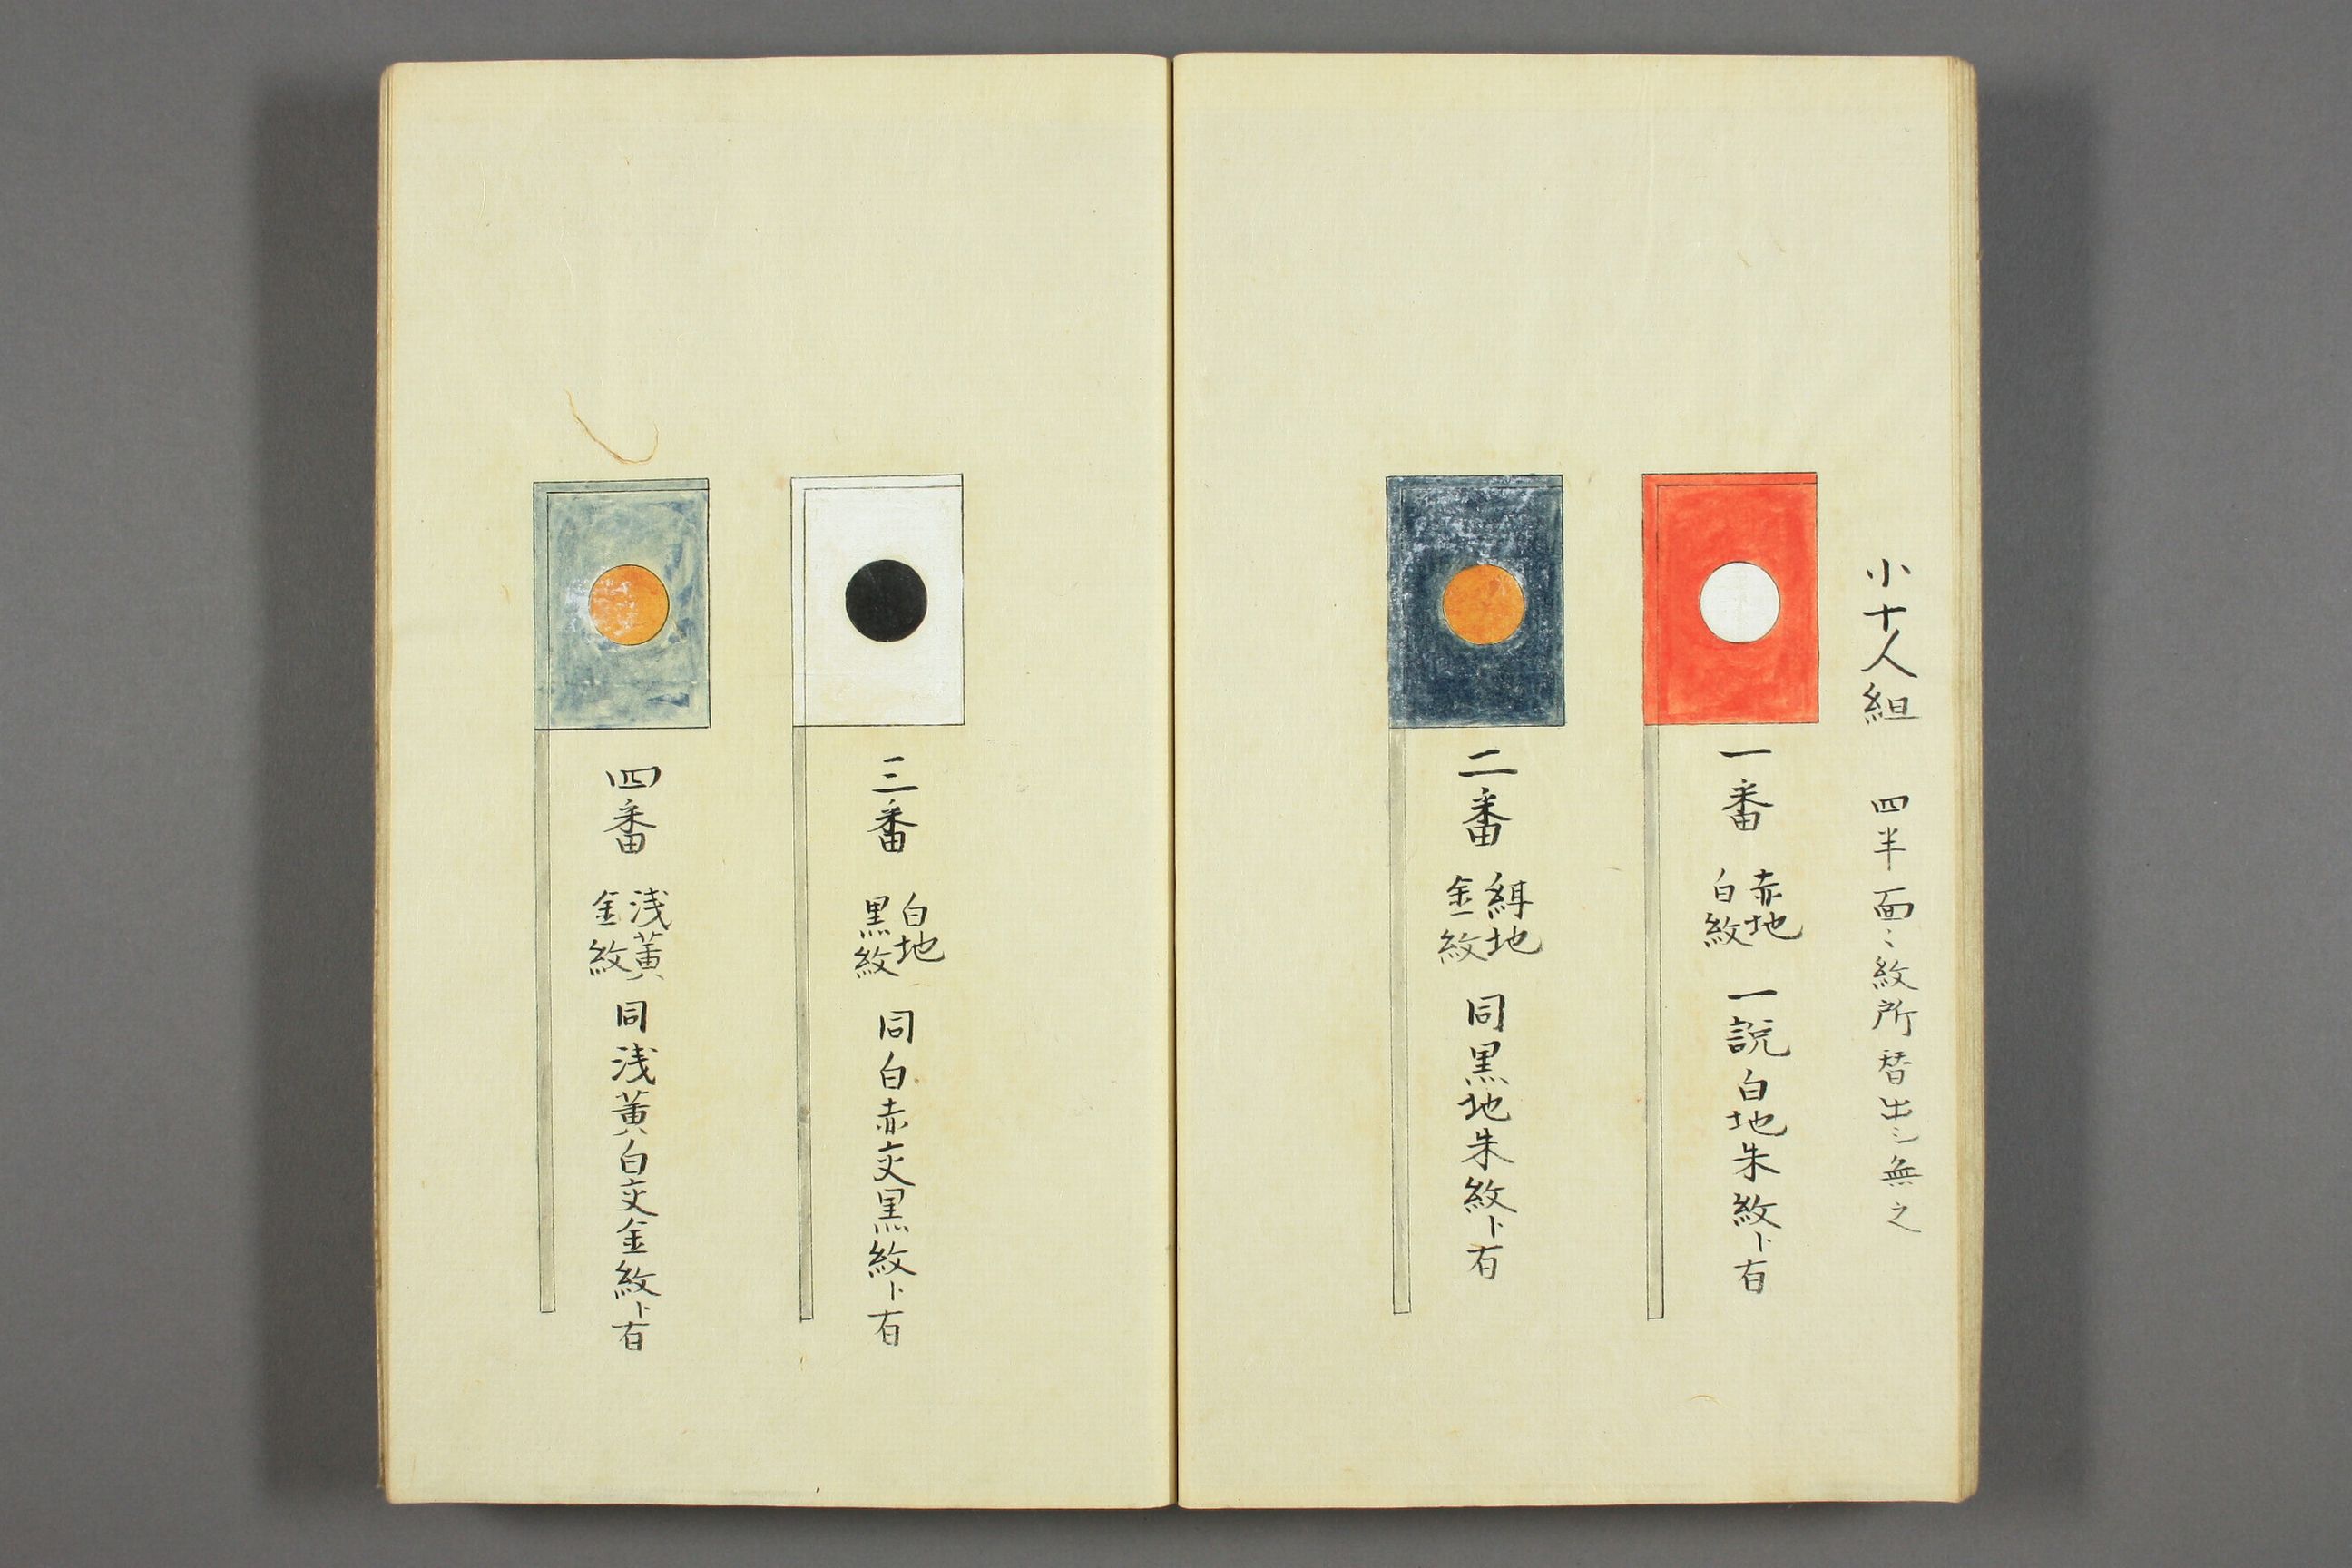 小十人組　四半面々紋所替出シ無之
一番　赤地白紋　一説白地朱紋ト有
二番　地金紋　同黒地朱紋ト有
三番　白地黒紋　同白赤交黒紋ト有
四番　浅黄金紋　同浅黄白交金紋ト有